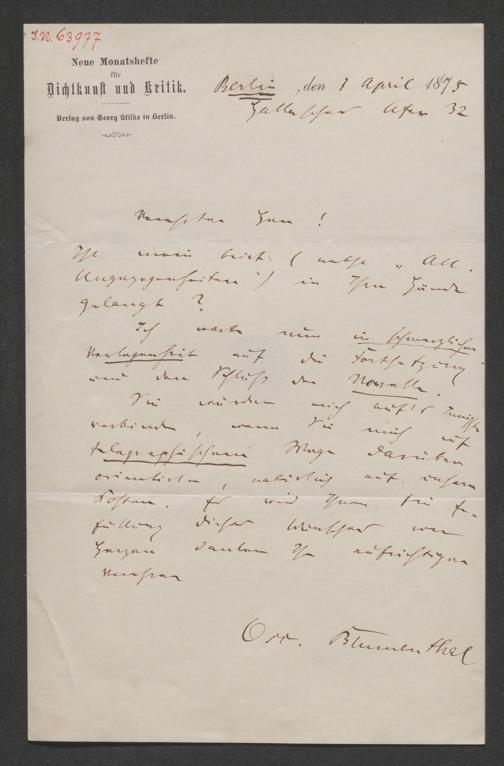 I.N. 63977
Neue Monatshefte
für
Dichtkunst und Kritik.
Verlag von Georg Stilke in Berlin.
Berlin, den 1 April 1875
Hallesches Ufer 32
Verehrter Herr!
Ist mein Brief (nebst „All.
Angezogenheiten“) in Ihre Hände
gelangt?
Ich warte nun in schmerzlicher
Verlegenheit auf die Fortsetzung
und den Schluß der Novelle.
Sie würden mich auf's Innigste
verbinden, wenn Sie mich auf
telegraphischem Wege darüber
orientirten, natürlich auf unsere
Kosten. Es wird Ihnen die Er-
füllung dieser Wünsche von
Herzen danken Ihr aufrichtiger
Verehrer
Osc. Blumenthal